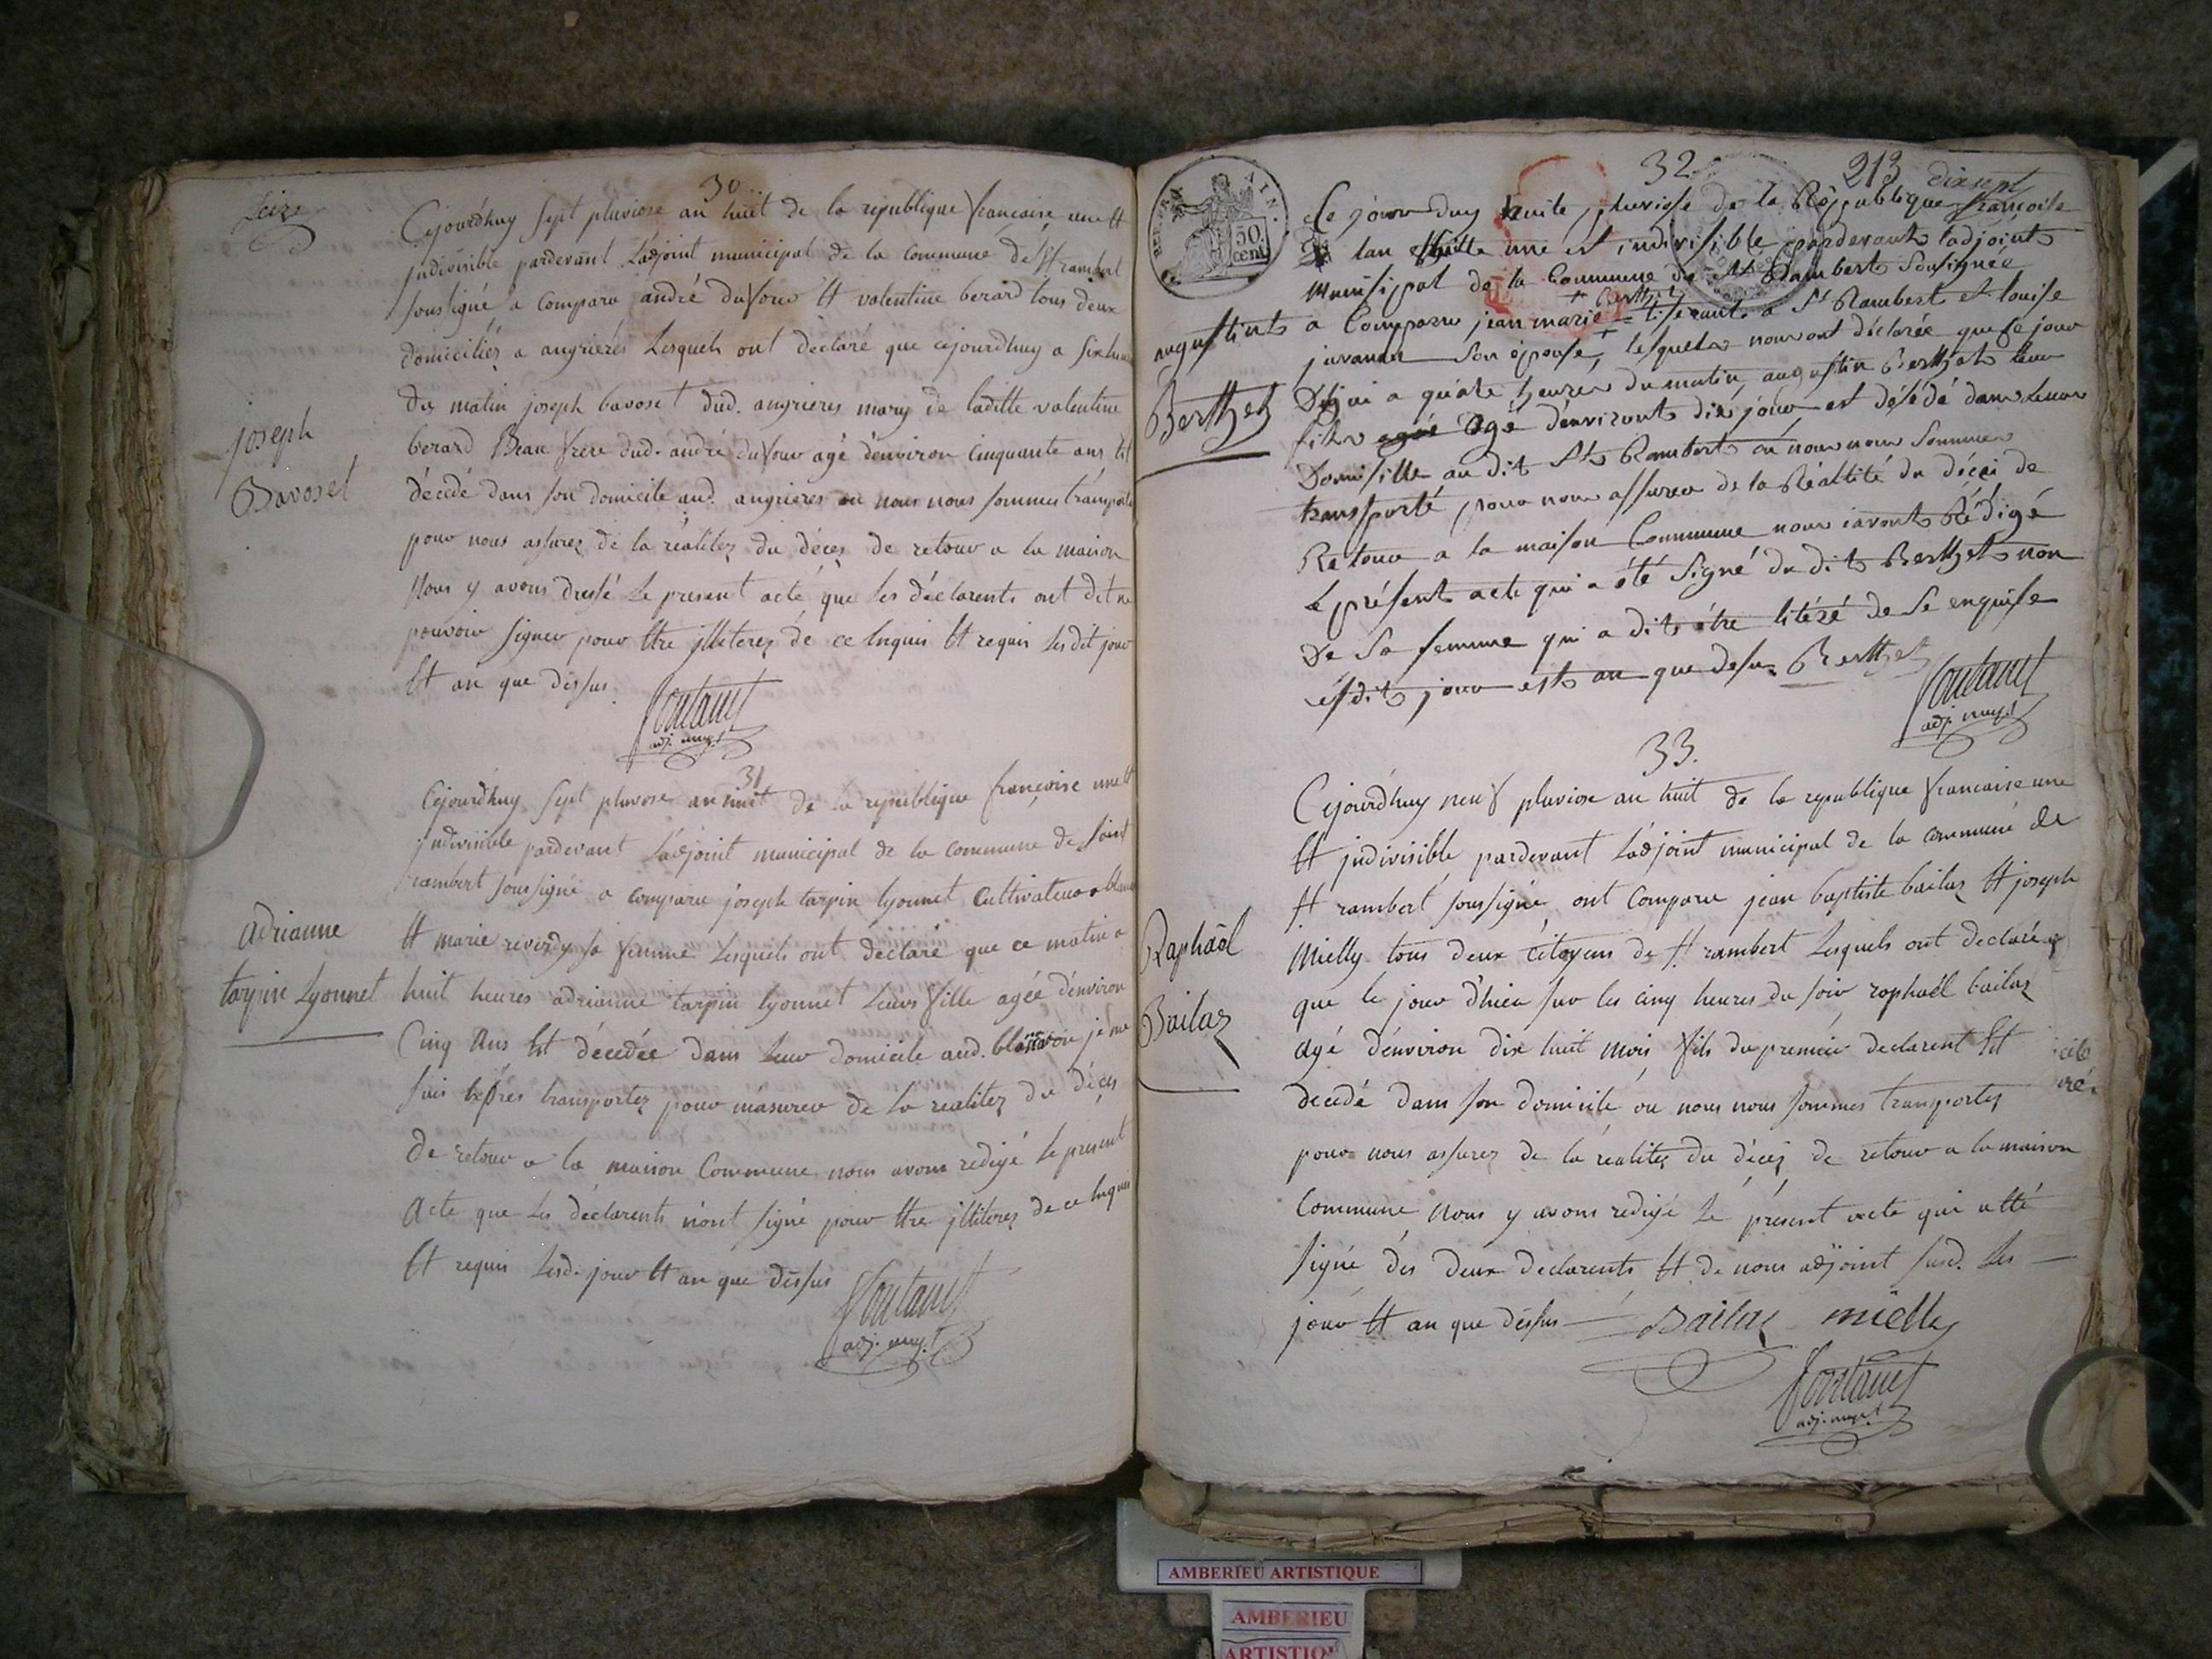 Seize
30
Cejourd'huy sept pluviose an huit de la republique francaise une Et
jndivisible pardevant L'adjoint municipal de la commune de St rambert
soussigné a comparu andré dufour Et valentine berard tous deux
domiciliés a angriéres Lesquels ont declaré que cejourdhuy a six heures
du matin joseph bavoset dud. angrieres mary de laditte valentine
berard Beau frere dud. andré dufour agé d'environ Cinquante ans Est
décédé dans son domicile aud. angrieres ou nous nous sommes transporté
pour nous assurez de la réalitez du déces de retour a la maison
Nous y avons dressé Le present acte que Les déclarents ont dit ne
pouvoir signer pour Etre jlliterez de ce Enquis Et requis Les dit jour
Et an que dessus
joseph
Bavoset
adj. mup.l
31
Cejourd'huy sept pluvose an huit de la republique françoise une Et
jndivisible pardevant L'adjoint municipal de la commune de saint
rambert soussigné a comparu joseph tarpin lyonnet Cultivateur a
Et marie reverdy sa femme Lesquels ont déclaré que ce matin a
huit heures adrianne tarpin lyonnet Leurs fille agée d'environ
Cinq Ans Est décédée dans Leur domicile aud. ou je me
suis transportez pour m'asurer de la realitez du déces
de retour a la maison Commune nous avons redigé Le present
Acte que Les déclarents n'ont signé pour Etre jlliterez de ce Enquis
Et requis Lesd. jour Et an que dessus
adrianne
tarpin Lyonnet
adj. mup.l
32. 213 dixsept
REP. FRA
50
cent
Ce jourduy huite pluviose de la Réppublique françoise
lan huitte une est indivisible pardevants ladjoints
munisipal de la Commune de St Rambert sousignée
a Comparru jean marie + Berthet tiserants a St Rambert et louise
juvanon son épouse, lesquels nous ont déclarée que se jour
Dhui a quatre heures du matin, augustin Berthet leur
fils agé d'environts dix jour est désédé dans leur
Domisille au dit St Rambert ou nous nous sommes
transporté pour nous assurer de la Réallité du décei de
Retour a la maison Commune nous iavonts Rédigé
le présent acte qui a été signé du dit Berthet non
de sa femme qui a dit être litéré de se enquise
ésdit jour est an que desus Berthet
augustints
Berthet
adj. mup.l
33.
Cejourd'huy neuf pluviose an huit de la republique francaise une
Et jndivisible pardevant L'adjoint municipal de la commune de
St rambert soussigné ont Comparu jean baptiste bailaz Et joseph
Mielly tous deux citoyens de St rambert Lesquels ont declaré
que le jour d'hier sur les cinq heures du soir raphaël bailaz
agé d'environ dix huit Mois fils du premier declarent Est
decedé dans son domicile ou nous nous sommes transportez
pour nous assurez de la realitez du déces de retour a la maison
Commune Nous y avons redigé Le present acte qui a Eté
signé des deux declarents Et de nous adjoint susd. Les
jour Et an que dessus Bailaz mielly
Raphaël
Bailaz
adj. mup.l
AMBERIEU ARTISTIQUE
AMBERIEU
ARTISTIQU